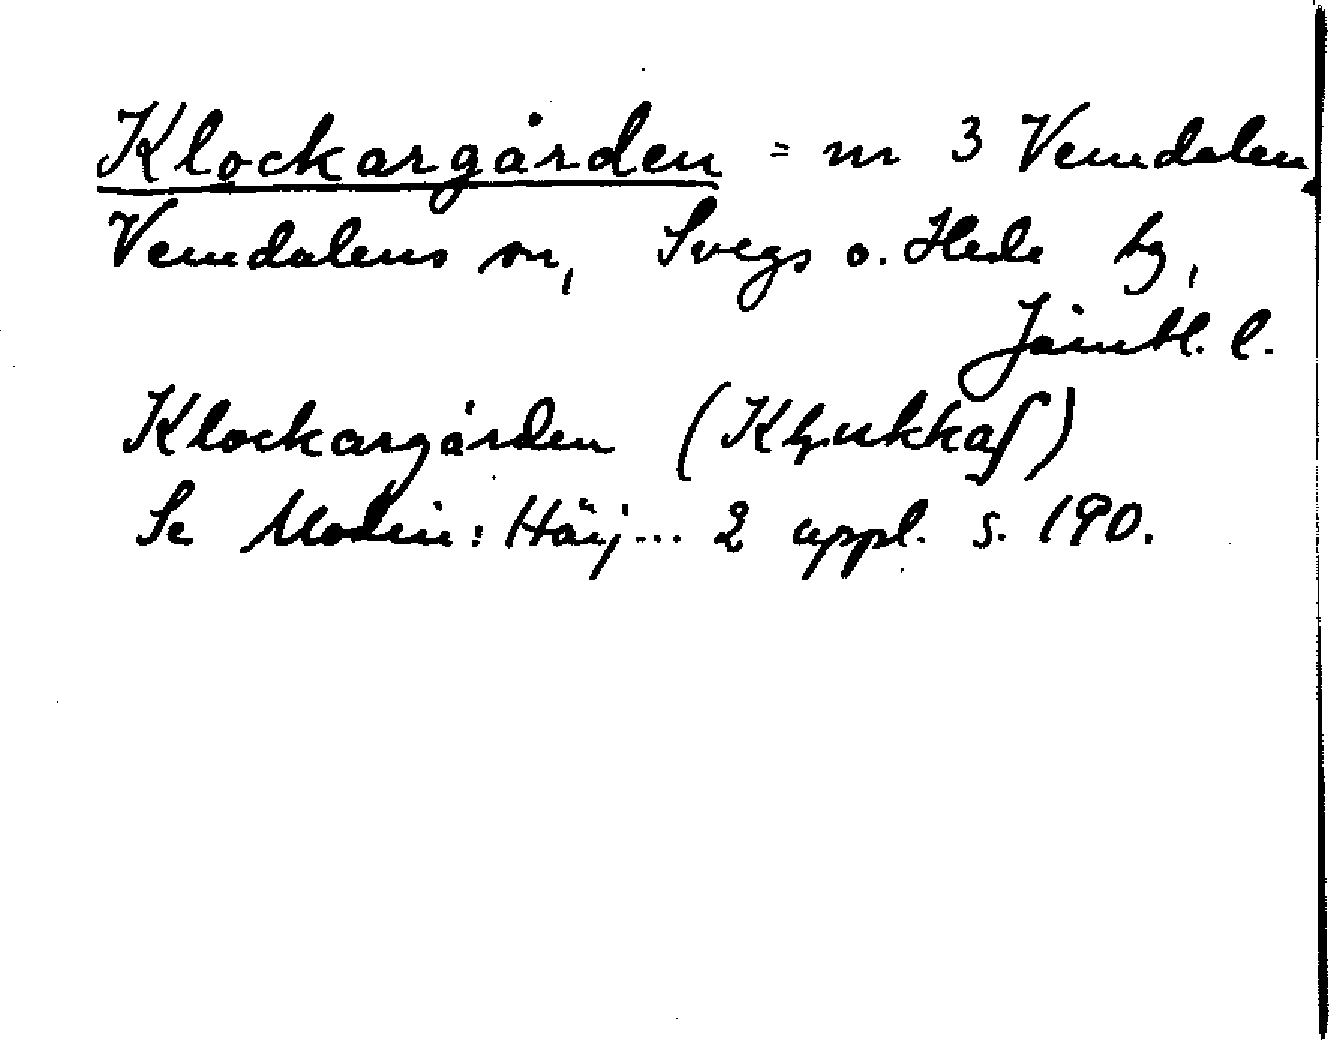 Klockargården = nr 3 Vemdalen,
Vemdalens sn, Svegs o. Hede tg,
Jämtl. l.
Klockargården (Kljukkaʃ)
Se Modin: Härj... 2 uppl. s. 190.